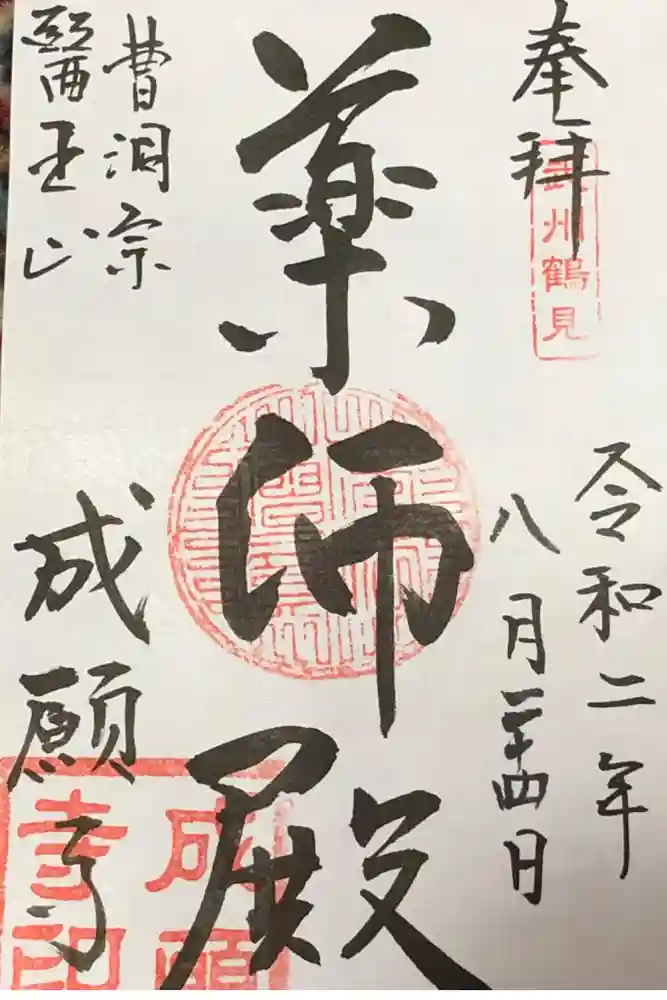 奉拝
武州鶴見
令和二年
八月二十四日
薬師殿
曹洞宗
醫王山
成願寺
成願
寺印